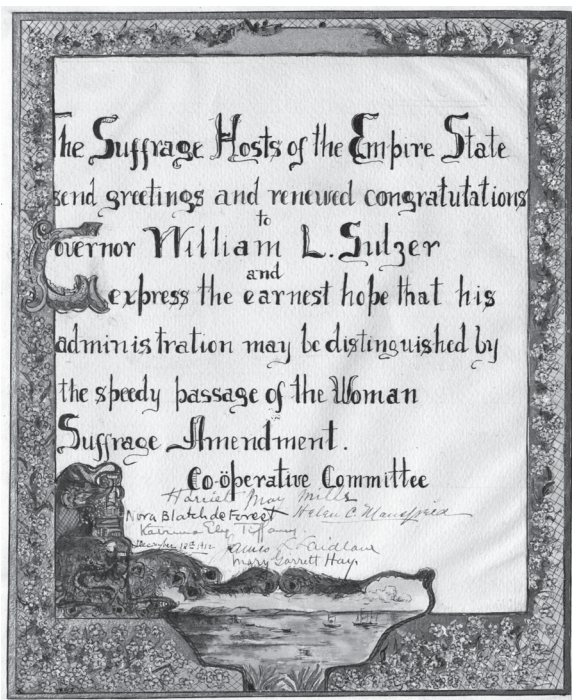 The Suffrage Hosts of the Empire State
send greetings and renewed congratutations
to
Governor William L. Sulzer
and
express the earnest hope that his
administration may be distinguished by
the speedy passage of the Woman
Suffrage Amendment.
Co-öperative Committee
Harriet May Mills
Nora Blatch de Forest Helen C. Mansfield
Katrina Ely Tiffany.
December 18th 1912 Laidlaw
Mary Garrett Hay.